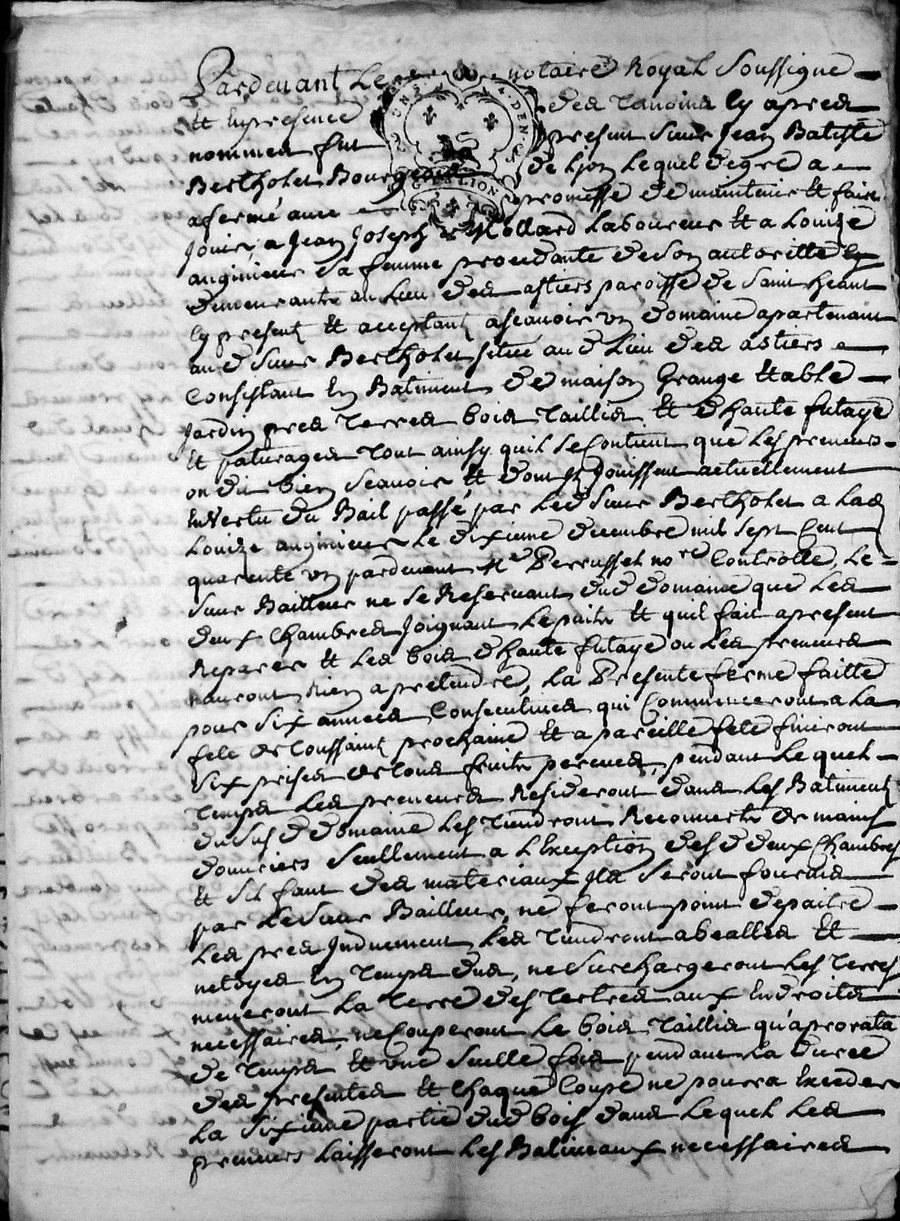 Pardevant Le notaire Royal Soussigné
Et En presence des Temoins Cy apres
nommes fut present Sieur Jean Batiste
Bertholet Bourgeois de Lyon Lequel degré a
afermé avec promesse de maintenir Et faire
Jouir, a Jean Joseph Mollard Laboureur Et a Louize
anginieur Sa femme procedante de Son autoritté Cy
demeurants au Lieu des astiers paroisse de Saint heant
Cy presents Et acceptants a scavoir un domaine apartenant
aud Sieur Bertholet situé aud Lieu des astiers
Consistant En Batiments de maison Grange Etable
Jardin pres Terres bois Taillis Et d'haute futaye
Et paturages Tout ainsy quil Se Contient que Les preneurs
ont dit bien Scavoir, Et dont Ils Jouissent actuellement
En Vertu du Bail passé par Led Sieur Bertholet a Lad
Louize anginieur Le dixieme decembre mil Sept Cent
quarente un pardevant Me Perrussel nore Controllé, Le
Sieur Bailleur ne Se Reservant dud domaine que Les
deux Chambres Joignant Lepaitre Et quil fait apresent
Reparer Et Les bois d'haute futaye ou Les preneurs
nauront Rien a pretendre, La Presente ferme faitte
pour Six années Consecutives qui Commenceront a La
fete de Toussaint prochaine Et a pareille fete finiront
Six prises de Tous fruits percues, pendant Lequel
Temps Les preneurs Resideront dans Les Batiments
du Susd domaine Les Tiendront Recouverts de mains
d'ouvriers Seullement a L'Exception desd deux Chambres
Et Sil faut des materiaux Ils Seront fournis
par Le Sieur Bailleur, ne feront point depaitre
Les pres Induement Les Tiendront abealles Et
netoyes En Temps dus, ne Surchargeront Les Terres
meneront La Terre des Tertres aux Endroits
necessaires, ne Couperont Le bois Taillis qu'aprorata
de Temps Et une Seulle fois pendant La durée
des presentes Et Chaque Coupe ne pourra Exceder
La Sixieme partie dud bois dans Lequel Les
preneurs Laisseront Les Baliveaux necessaires
GEN LYON